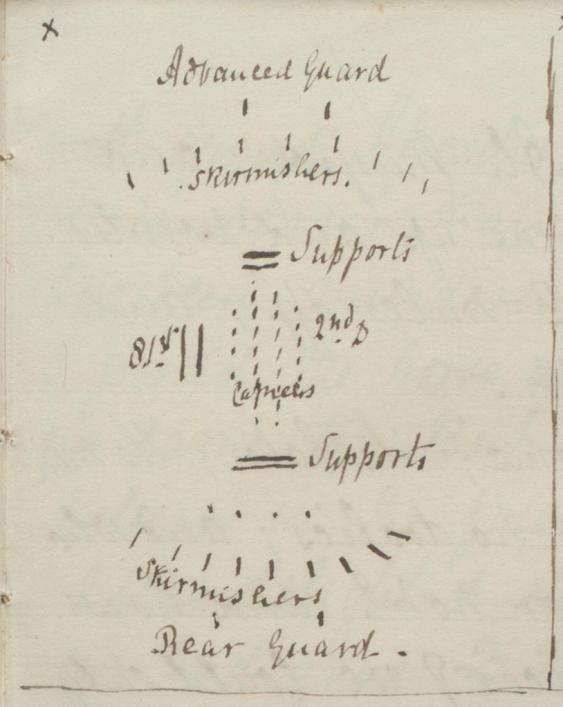 x
Advanced Guard
Skirmishers.
Supports
81st
2nd D
Supports
Skirmishers
Rear Guard.